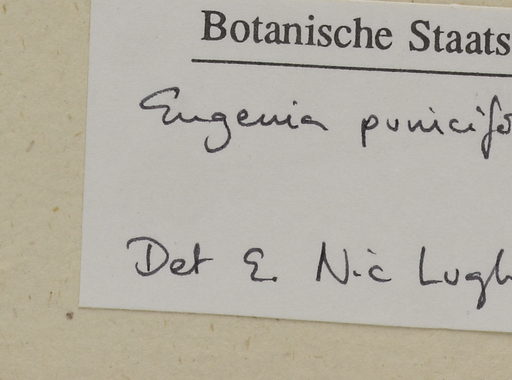 Botanische Staats
Eugenia punicifo
Det E. Nic Lugh